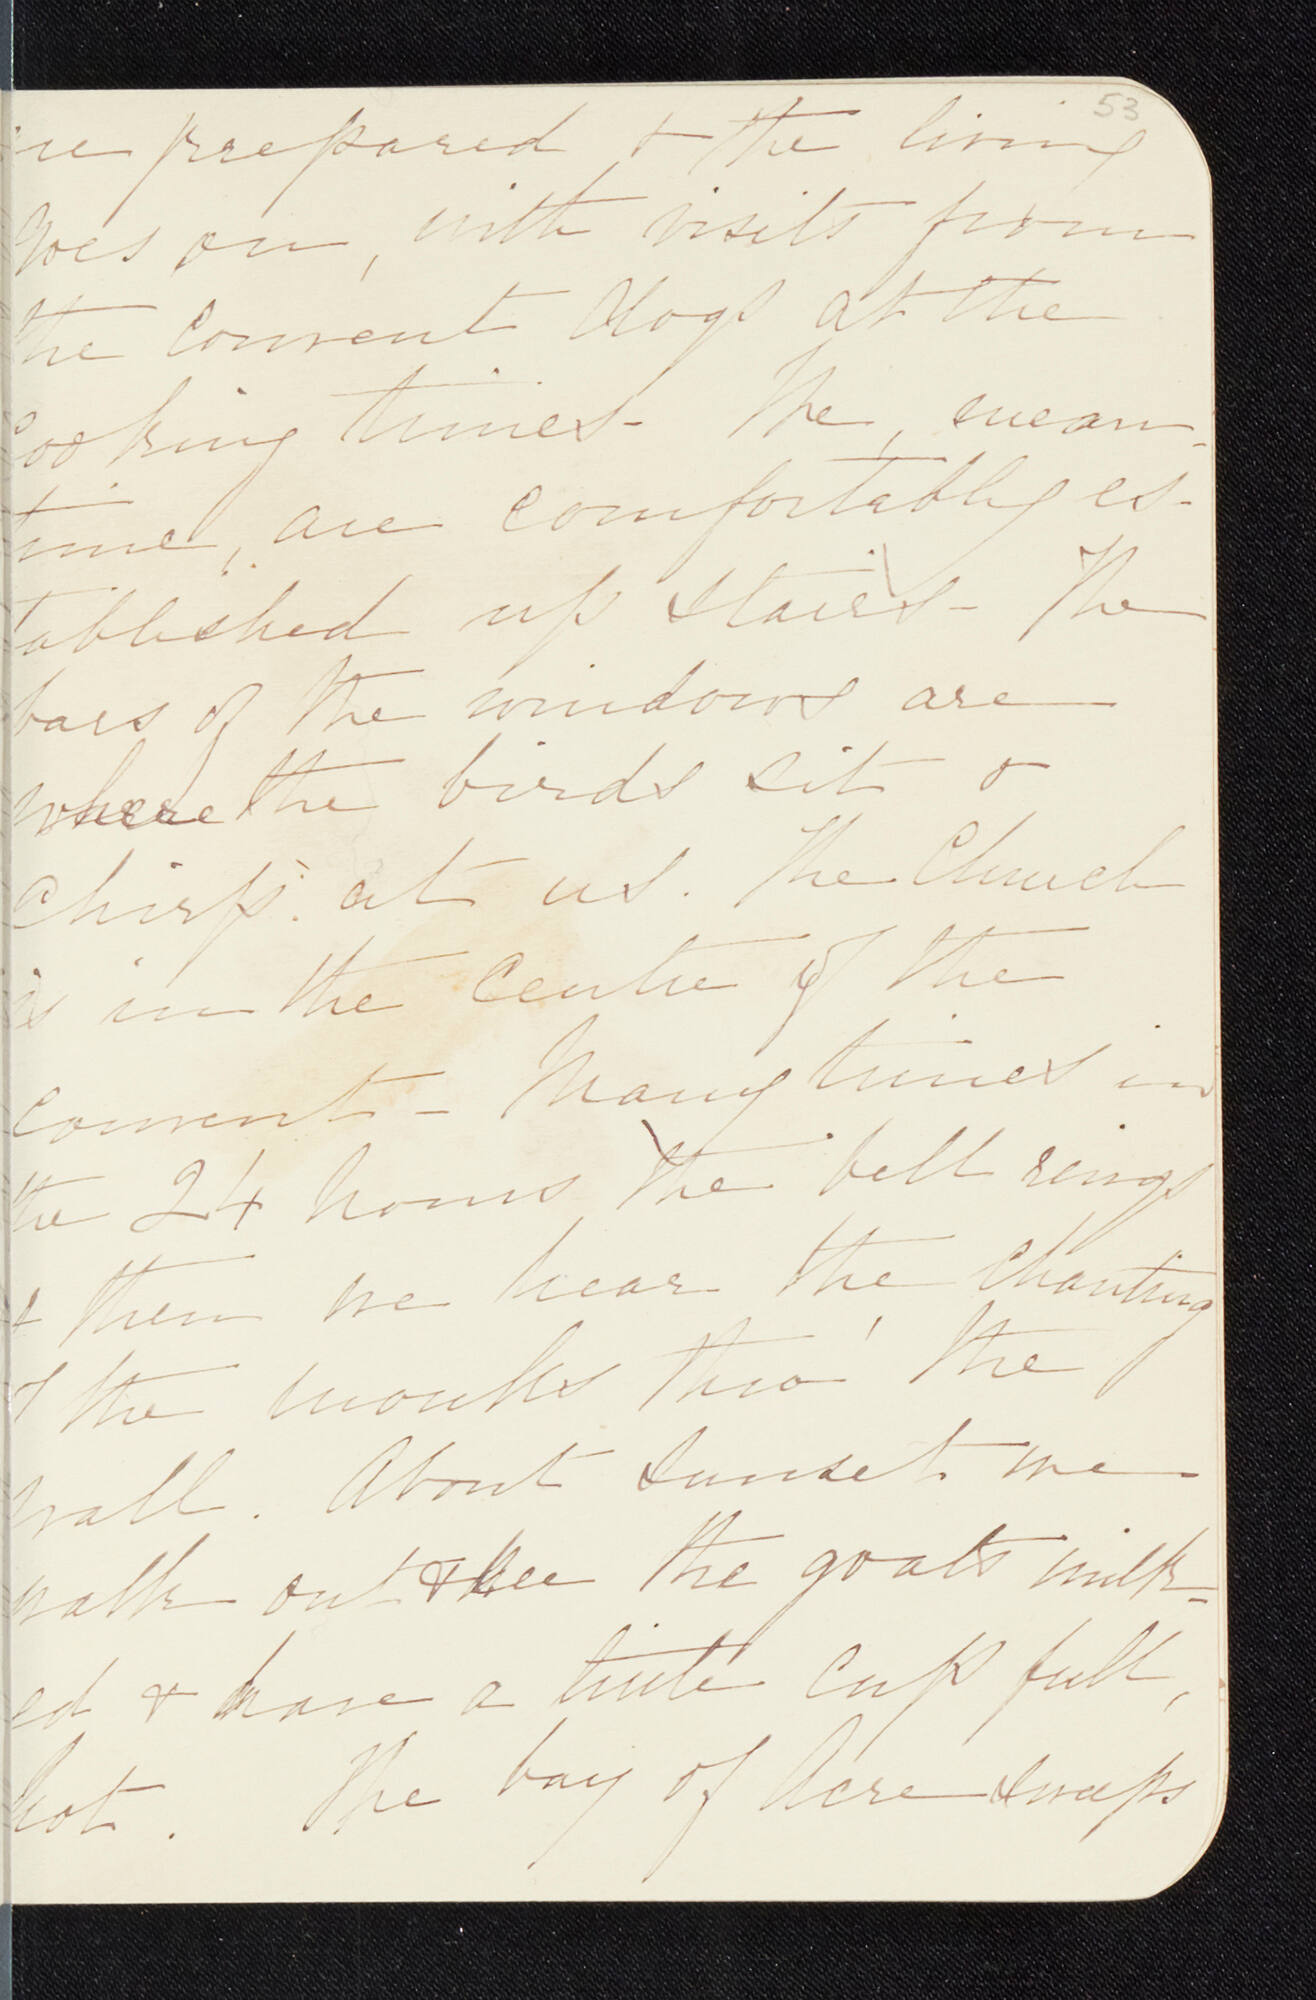 53
are prepared & the living
goes on, with visits from
the Convent dogs at the
cooking times - The, mean-
time, are comfortably es-
tablished up stairs - The
bars of the windows are
where the birds sit &
chirp at us. The Church
is in the centre of the
convent - Many times in
the 24 hours the bell rings
& then we hear the chanting
of the monks thro' the
wall. About sunset we
walk out & see the goats milk-
ed & have a little cup full,
hot. The bay of Acre sweeps